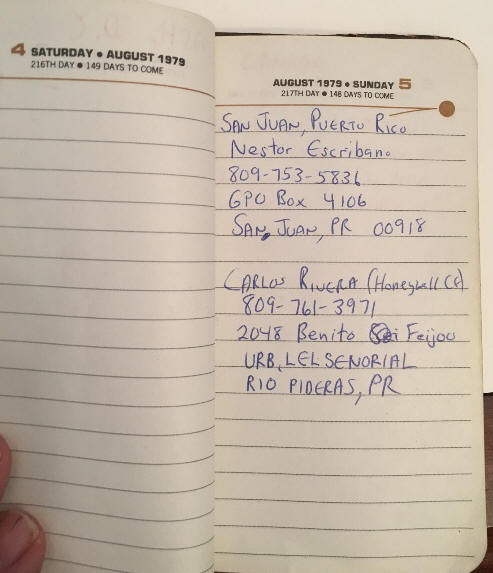 4 SATURDAY • AUGUST 1979
216TH DAY • 149 DAYS TO COME
AUGUST 1979 • SUNDAY 5
217TH DAY • 148 DAYS TO COME
SAN JUAN, PUERTO RICO
Nestor Escribano
809-753-5836
GPO Box 4106
SAN, JUAN, PR 00918
CARLOS RIVERA (Honeywell
809-761-3971
2048 Benito Feijou
URB, LEL SENORIAL
RIO PIDERAS, PR